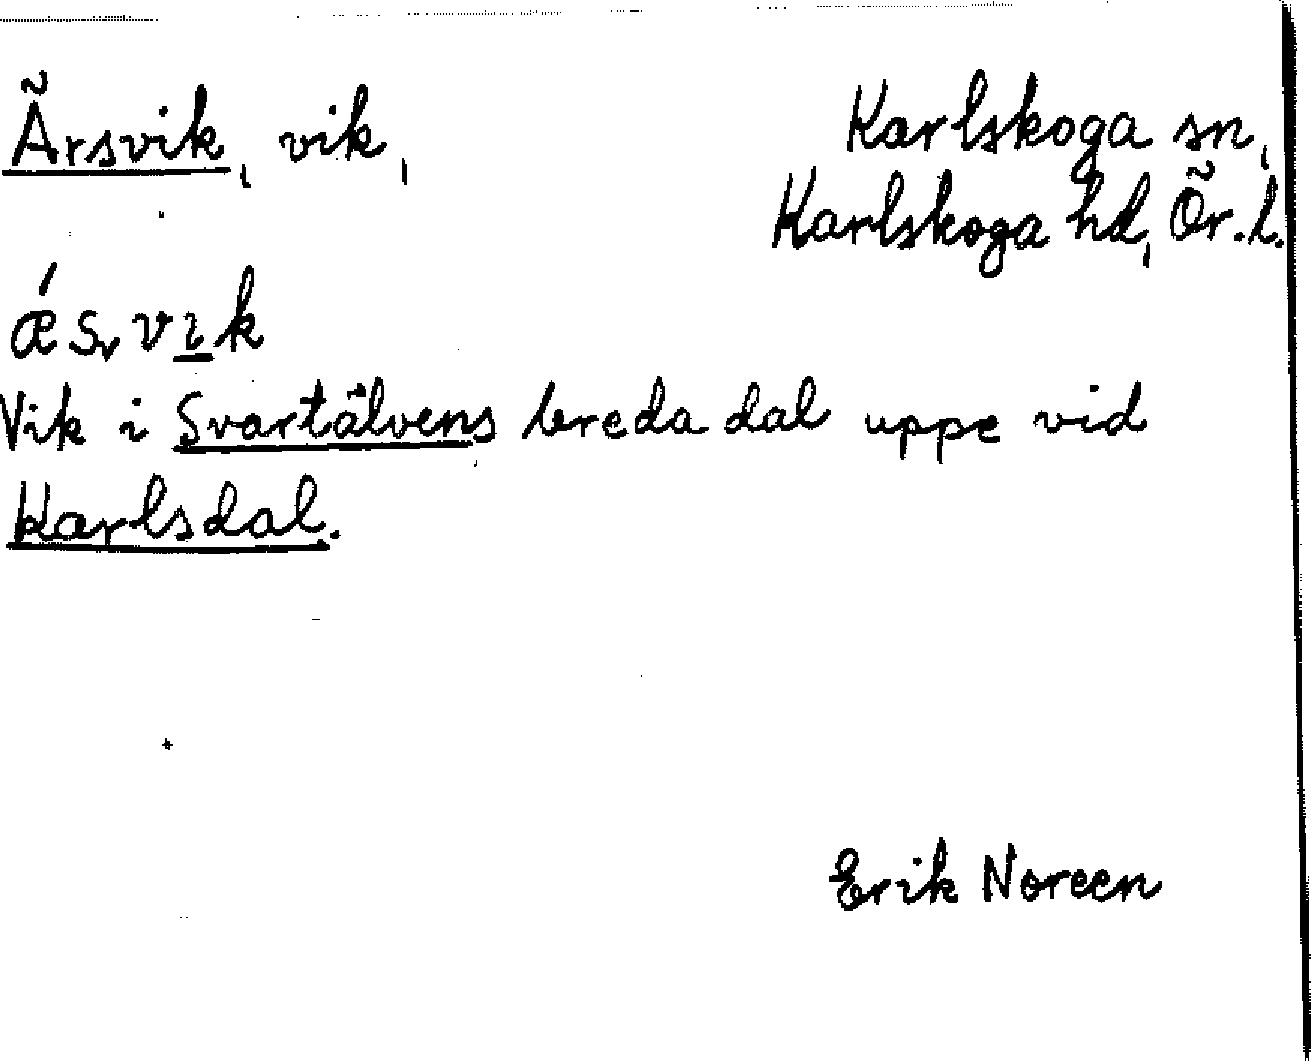 Ärsvik, vik,
Karlskoga sn,
Karlskoga hd, Ör.l.
ǽsvik
Vik i Svartälvens breda dal uppe vid
Karlsdal.
Erik Noreen